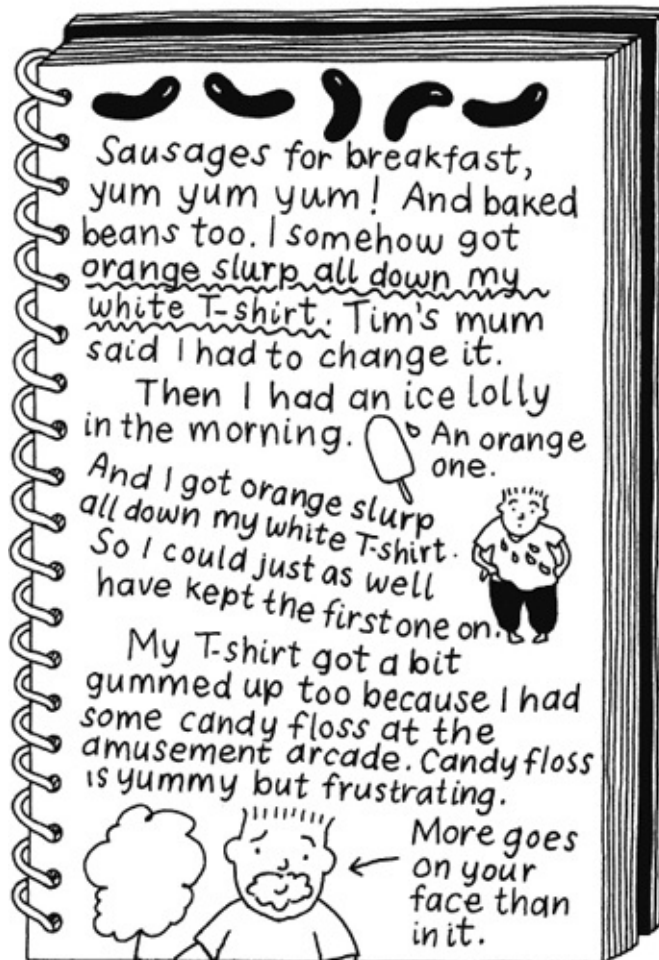 Sausages for breakfast,
yum yum yum! And baked
beans too. I somehow got
orange slurp all down my
white T-shirt. Tim's mum
said I had to change it.
Then I had an ice lolly
in the morning. An orange
one.
And I got orange slurp
all down my white T-shirt.
So I could just as well
have kept the first one on.
My T-shirt got a bit
gummed up too because I had
some candy floss at the
amusement arcade. Candy floss
is yummy but frustrating.
More goes
on your
face than
in it.